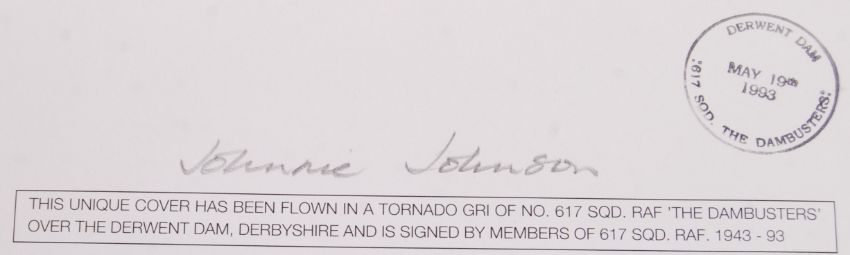 DERWENT DAM
MAY 19th
1993
"617 SQD. THE DAMBUSTERS"
Johnnie Johnson
THIS UNIQUE COVER HAS BEEN FLOWN IN A TORNADO GRI OF NO. 617 SQD. RAF 'THE DAMBUSTERS'
OVER THE DERWENT DAM, DERBYSHIRE AND IS SIGNED BY MEMBERS OF 617 SQD. RAF. 1943 - 93